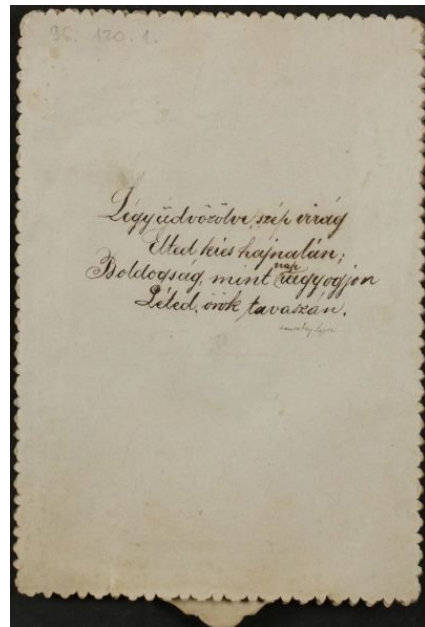 96.120.1.
Légy üdvözölve, szép virág
Élted kies hajnalán;
Boldogság, mint nap ragyogjon
Léted, örök tavaszán.